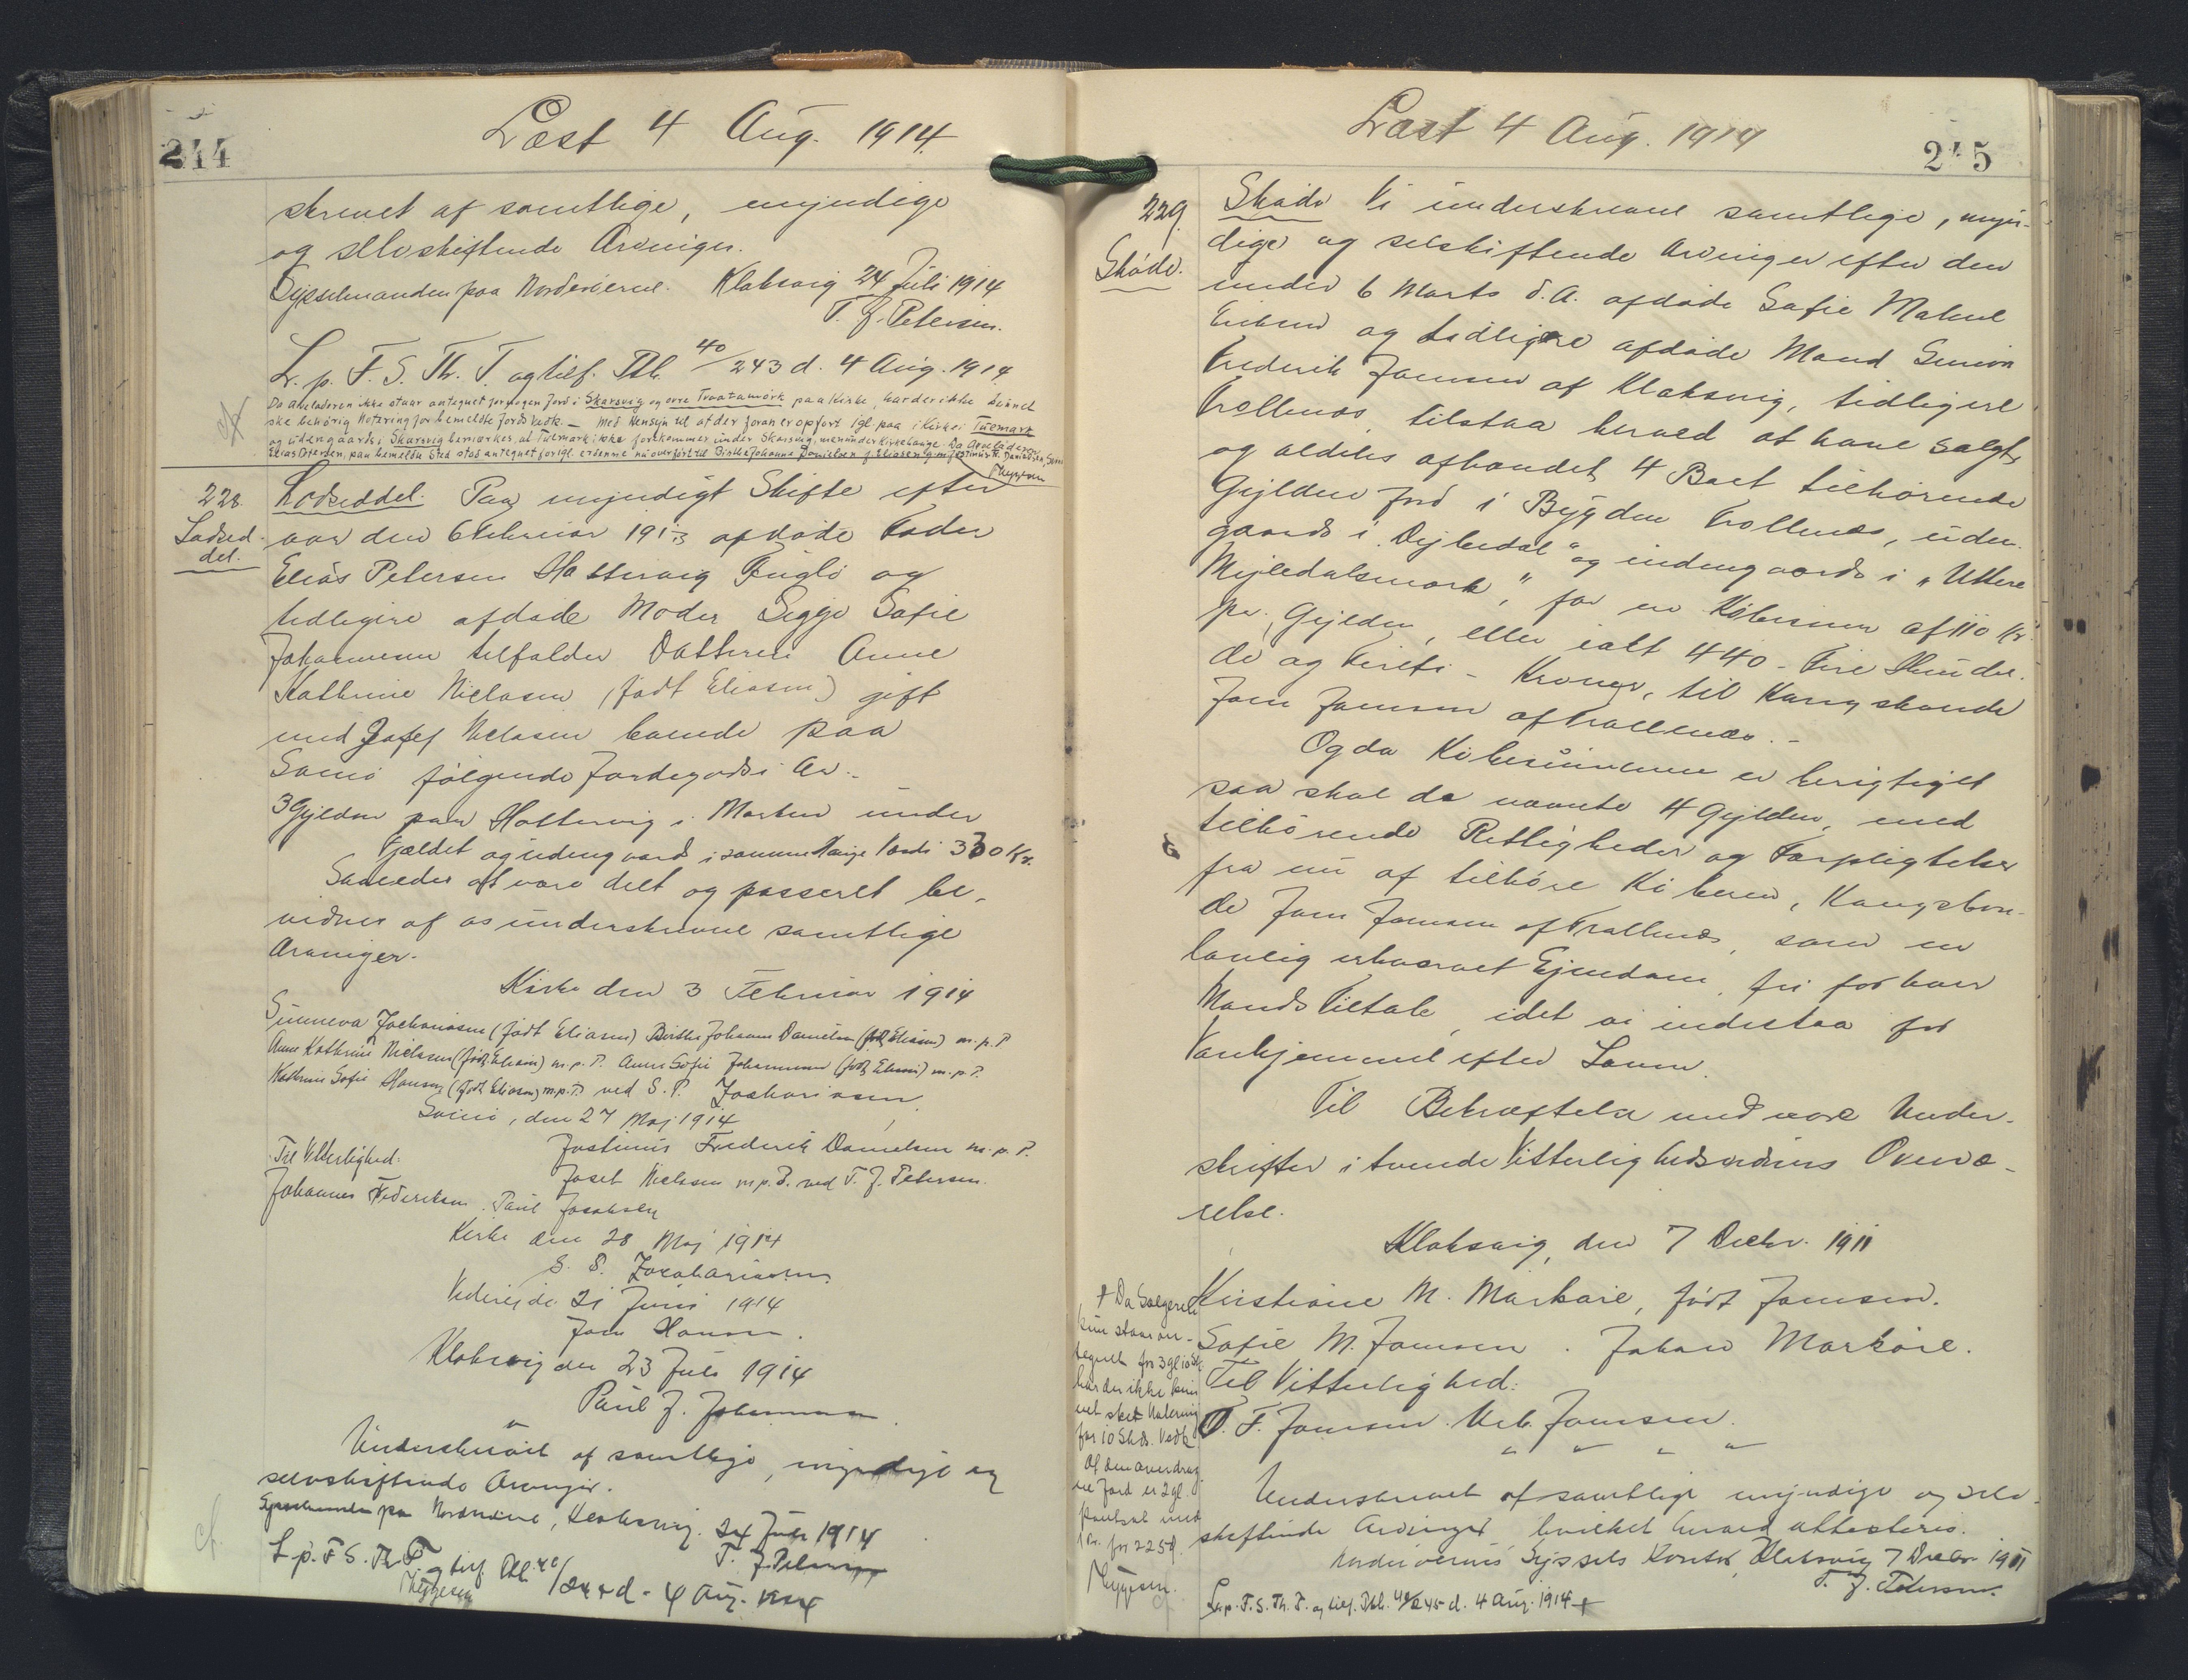 244
Læst 4 Aug. 1914.
skrevet af samtlige, myndige
og selvskiftende Arvinger.
Sysselmanden paa Norderöerne. Klaksvig 24 Juli 1914
T. J. Petersen.
L. p. F. S. Th. T. og tilf. Ptb. 40/243 d. 4 Aug. 1914
Da Arveladeren ikke staar antegnet for nogen Jord i Skarsvig og övre Tvaatamörk paa Kirke, har der ikke kunnet
ske behörig Notering for bemeldte Jords Vedk. — Med Hensyn til at der foran er opfört 1 gl. paa i Kirke i Tuemark
og udengaards i Skarsvig bemærkes, at Tuemark ikke forekommer under Skarsvig, men under Kirkebauge. Da Arveladeren
Elias Petersen, paa bemeldte Sted stod antegnet for 1 gl. er denne nu overfört til Birthe Johanne Danielsen f. Eliasen g. m. Justinus Fr. Danielsen,
228.
Lodsed-
del.
Lodseddel. Paa myndigt Skifte efter
vor den 6 Februar 1913 afdöde Fader
Elias Petersen Hattervig Fuglö og
tidligere afdöde Moder Siggo Sofie
Johannesen tilfalder Datteren Anne
Kathrine Niclasen (födt Eliasen) gift
med Josef Niclasen boende paa
følgende Jordegods i Arv:
3 Gylden paa Hattervig i Marken under
Fjældet og udengaards i samme Hauge Værdi 330 Kr.
Saaledes at være delt og passeret be-
vidnes af os underskrevne samtlige
Arvinger.
Kirke den 3 Februar 1914
Sunneva Joensen (födt Eliasen) Birthe Johanne Danielsen (födt Eliasen) m. p. P.
Anne Kathrine Niclasen (födt Eliasen) m. p. P. Anne Sofie Johannesen (födt Eliasen) m. p. P.
Kathrine Sofie Hansen (födt Eliasen) m. p. P. ved S. P. Zachariasen.
den 27 Maj 1914
Til Vitterlighed:
Justinus Frederik Danielsen m. p. P.
Josef Niclasen m. p. P. ved T. J. Petersen.
Johannes Frederiksen. Paul Jacobsen
Kirke den 28 Maj 1914
S. P. Zachariasen
Videreide 21 Juni 1914
Joen Hansen.
Klaksvig den 23 Juli 1914
Paul J. Johannesen.
Underskrevet af samtlige, myndige og
selvskiftende Arvinger.
Sysselmanden paa Norderöerne, Klaksvig. 24 Juli 1914
T. J. Petersen
L. p. F. S. Th. T. og tilf. Ptb. 40/244 d. 4 Aug. 1914
245
Læst 4 Aug. 1914
229.
Sköde.
Sköde Vi underskrevne samtlige, myn-
dige og selvskiftende Arvinger efter den
under 6 Marts d. A. afdöde Sofie Malene
og tidligere afdöde Mand Simon
Frederik Joensen af Klaksvig, tidligere
Trollenæs, tilstaa herved at have solgt
og aldeles afhændet 4 Boet tilhörende
Gylden Jord i Bygden Trollenæs, uden-
gaards i „Dejledal" og indengaards i „Uttere
Mejledalsmark", for en Köbesum af 110 Kr.
pr. Gylden, eller ialt 440 - Fire Hundre-
de og Firti - Kroner, til Kongsbonde
Joen Joensen af Trollenæs.-
Og da Köbesummen er berigtiget
saa skal de nævnte 4 Gylden, med
tilhörende Rettigheder og Forpligtelser
fra nu af tilhöre Köberen, Kongsbon-
de Joen Joensen af Trollenæs, som en
lovlig erhvervet Ejendom, fri for hver
Mands Tiltale, idet vi indestaa for
Vanhjemmel efter Loven.
Til Bekræftelse med vore Under-
skrifter i tvende Vitterlighedsvidners Overvæ-
relse.
Klaksvig, den 7 Decbr. 1911
Kristiane M. Markøre, födt Joensen.
Sofie M. Joensen. Johan Markøre.
Til Vitterlighed:
O. F. Joensen. Joensen.
Underskrevet af samtlige myndige og selv-
skiftende Arvinger hvilket herved attesteres.
Norderöernes Syssels Kontor, Klaksvig 7 Decbr. 1911
T. J. Petersen.
L. p. F. S. Th. P. og tilf. Ptb. 40/245 d. 4 Aug. 1914 +
+ Da Sælgerne
kun staar an-
tegnet for 3 gl 10 Sk.
har der ikke kun-
net sket Notering
for 10 Skds. Vedk.
Af den overdrag-
ne Jord er 2 gl.
pantsat med
for 225